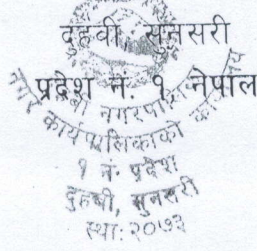 दुहवी सुनसरी
प्रदेश नं. १ नेपाल
नगर कार्यपालिकाको कार्यालय
१ नं. प्रदेश
दुहवी, सुनसरी
स्था: २०७३